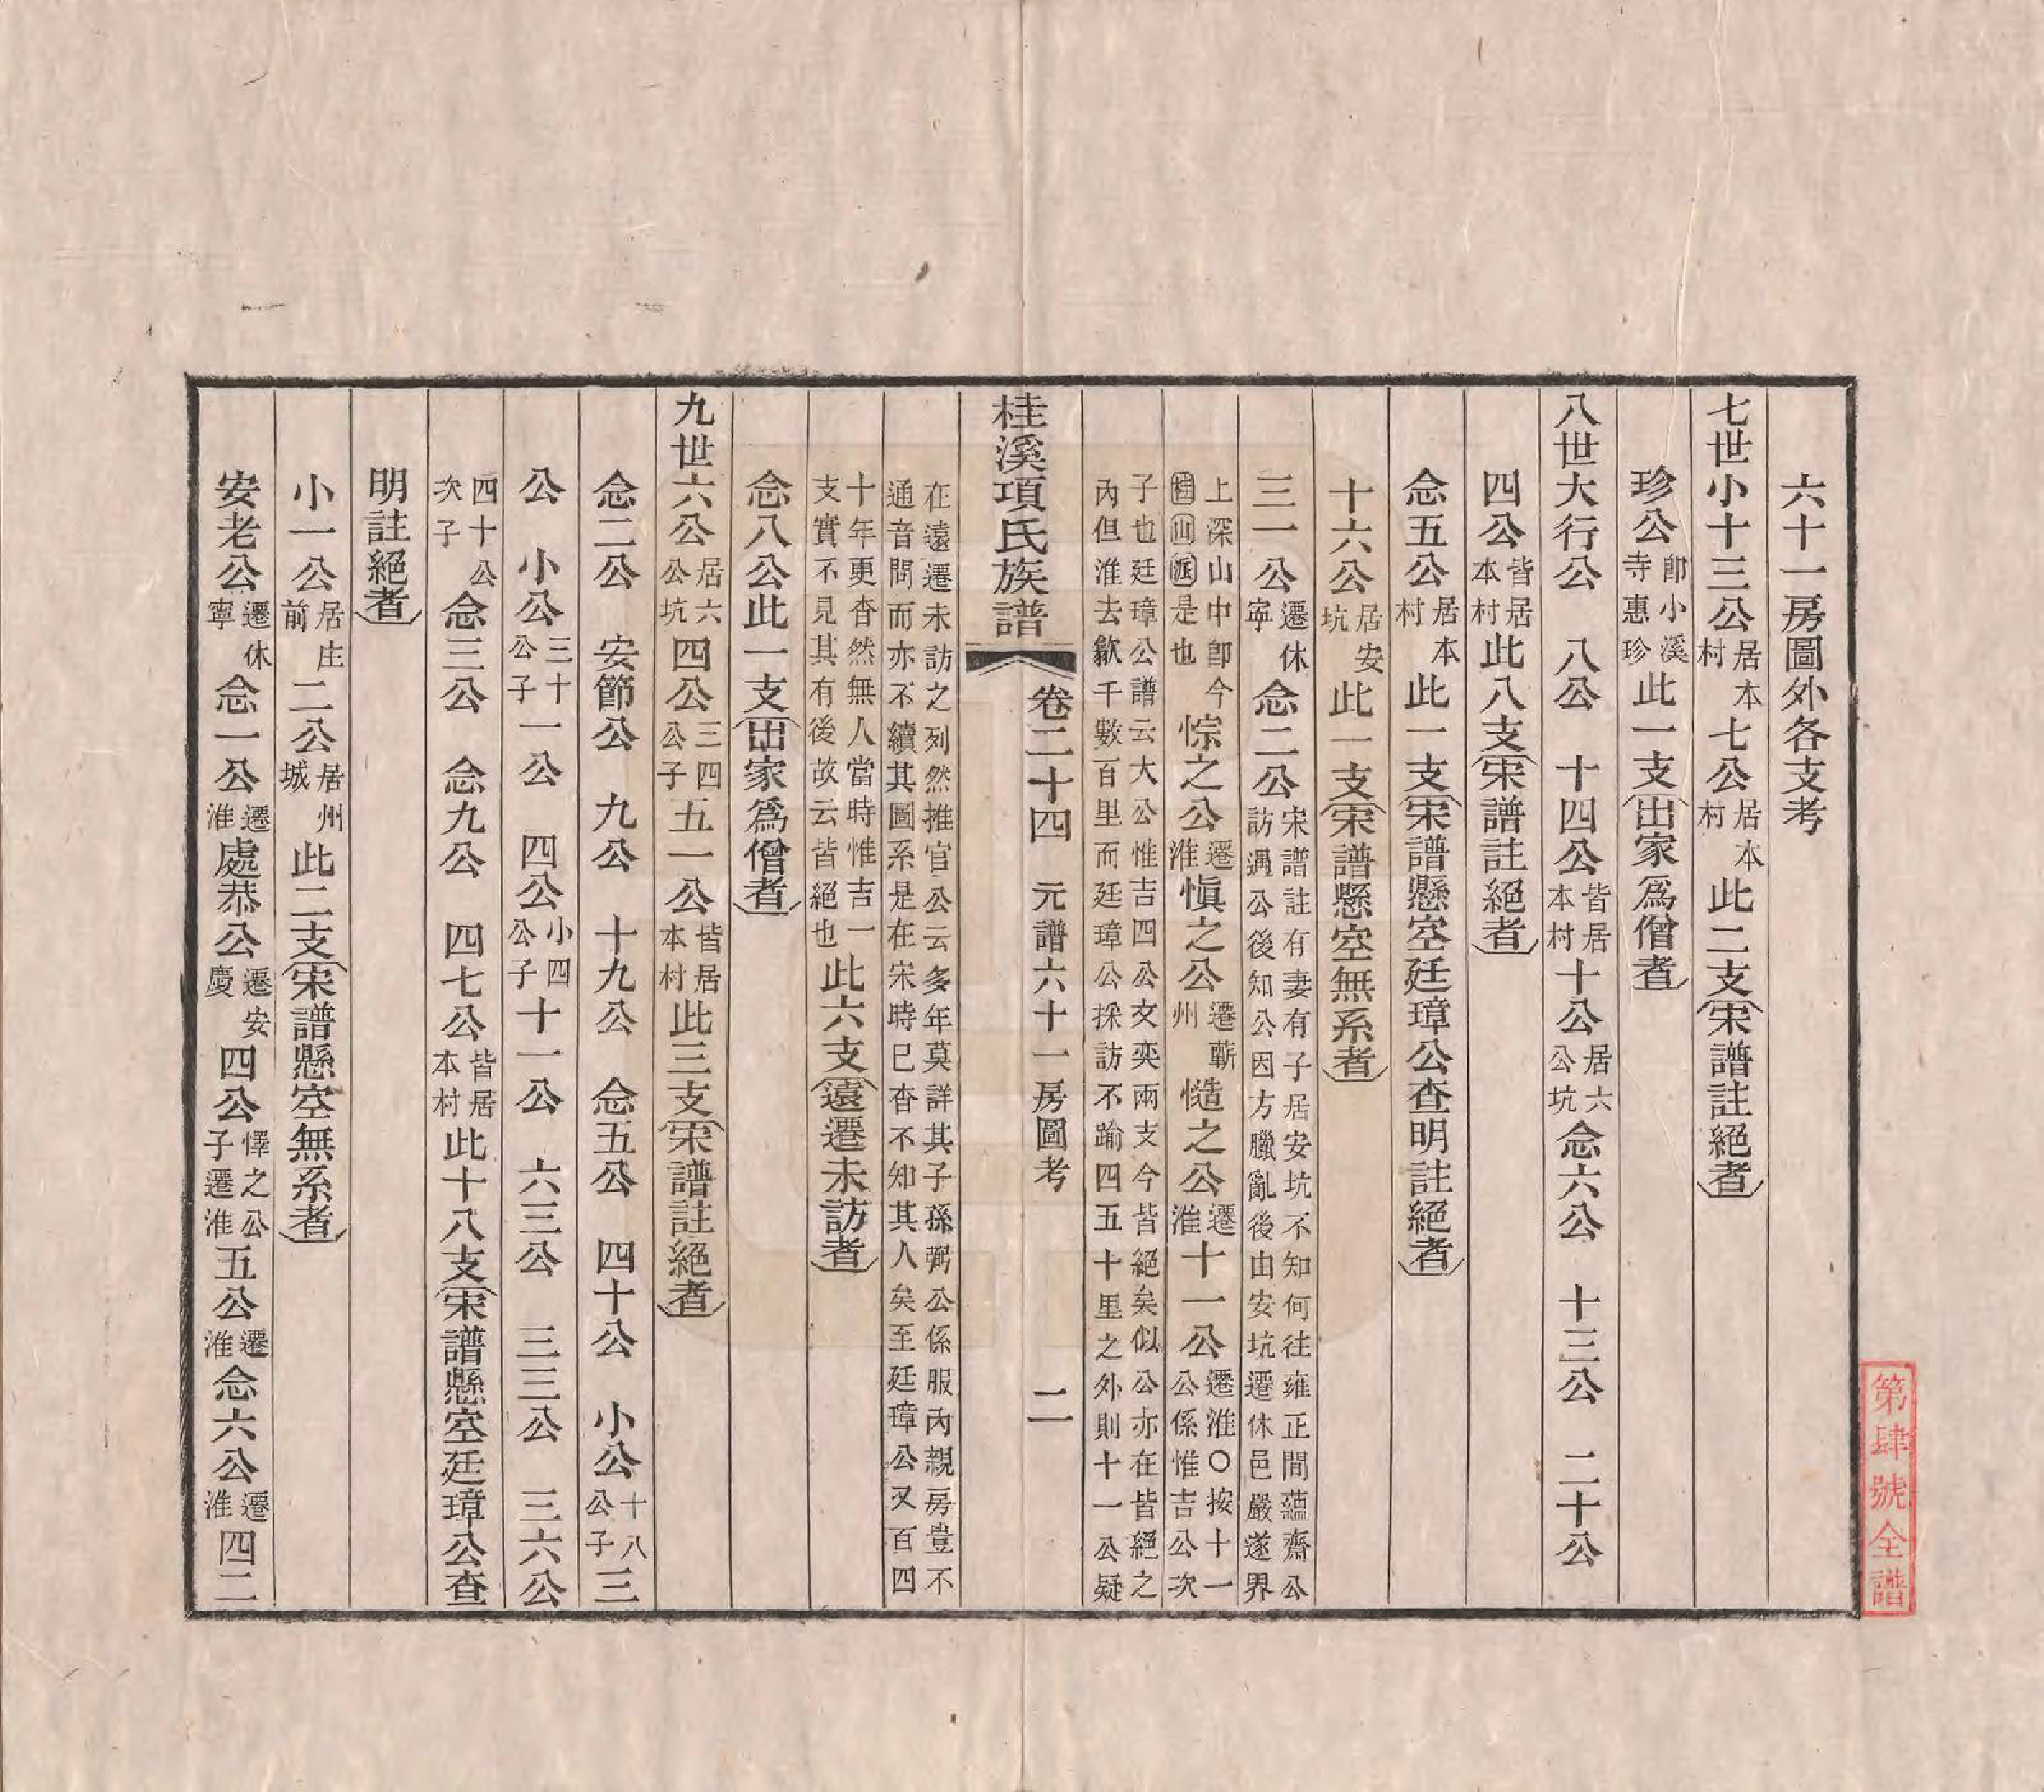 六十一房圖外各支考
七世小十三公居本村七公居本村此二支宋譜註絕者
珍公卽小溪寺惠珍此一支出家爲僧者
八世大行公　八公　十四公皆居本村十公居六公坑念六公　十三公　二十公
四公皆居本村此八支宋譜註絕者
念五公居本村此一支宋譜懸空廷璋公查明註絕者
十六公居安坑此一支宋譜懸空無系者
三一公遷休寧念二公宋譜註有妻有子居安坑不知何往雍正間蘊齋公訪遇公後知公因方臘亂後由安坑遷休邑嚴遂界
上深山中卽今桂山派是也悰之公遷淮愼之公遷蘄州慥之公遷淮十一公遷淮○按十一公係惟吉公次
子也廷璋公譜云大公惟吉四公文奕兩支今皆絕矣似公亦在皆絕之內但淮去歙千數百里而廷璋公採訪不踰四五十里之外則十一公疑
桂溪項氏族譜　卷二十四　元譜六十一房圖考　二
在遠遷未訪之列然推官公云多年莫詳其子孫弼公係服內親房豈不通音問而亦不續其圖系是在宋時已杳不知其人矣至廷璋公又百四
十年更杳然無人當時惟吉一支實不見其有後故云皆絕也此六支遠遷未訪者
念八公此一支出家爲僧者
九世六公居六公坑四公三四公子五一公皆居本村此三支宋譜註絕者
念二公　安節公　九公　十九公　念五公　四十公　小公十八公子三
公　小公三十公子一公　四公小四公子十一公　六三公　三三公　三六公
四十公次子念三公　念九公　四七公皆居本村此十八支宋譜懸空廷璋公查
明註絕者
小一公居庄前二公居州城此二支宋譜懸空無系者
安老公遷休寧念一公遷淮處恭公遷安慶四公懌之公子遷淮五公遷淮念六公遷淮四二
第肆號全譜